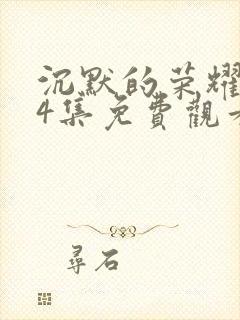 沉默的荣耀
4集免費觀
尋石